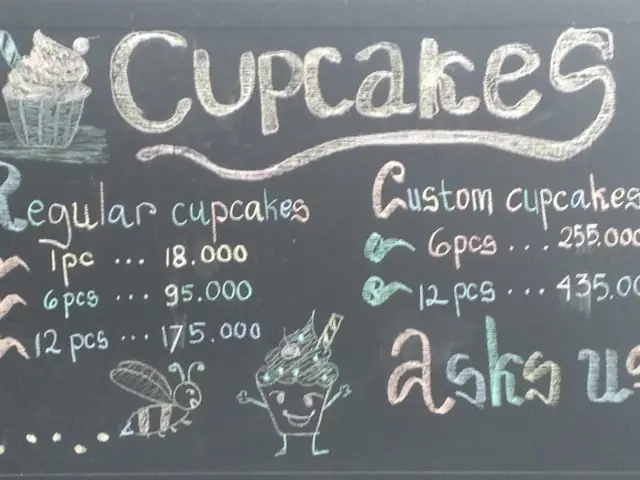 Cupcakes
Regular cupcakes
1pc ... 18.000
6pcs ... 95.000
12 pcs ... 175.000
Custom cupcakes
6pcs ... 255.000
12 pcs ... 435.00
asks us